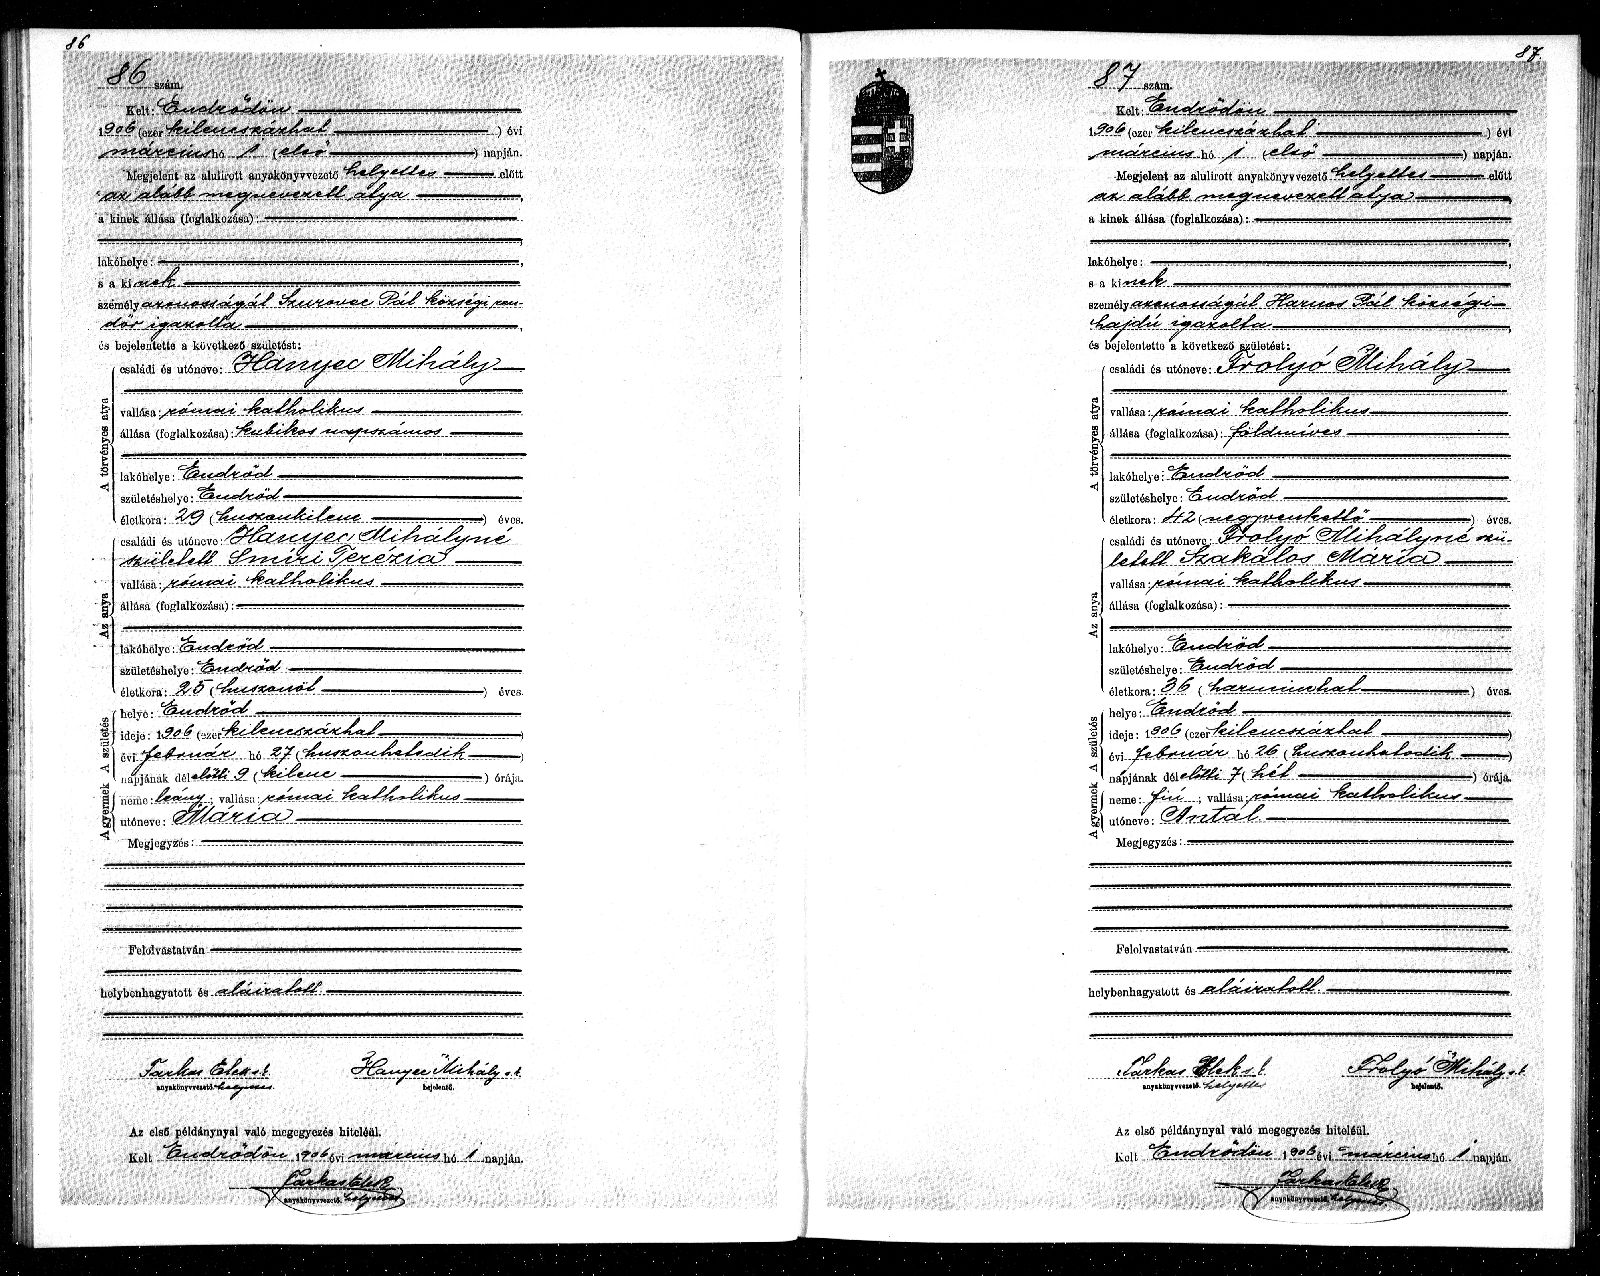 86
86 szám.
Kelt: Endrődön
1906 (ezer kilencszázhat ) évi
március hó 1 (első ) napján.
Megjelent az alulirott anyakönyvvezető helyettes előtt
az alább megnevezett atya ,
a kinek állása (foglalkozása):
lakóhelye: ,
s a kinek
személyazonosságát Szurovec Pál községi ren-
dőr igazolta ,
és bejelentette a következő születést:
A törvényes atya
családi és utóneve: Hanyec Mihály
vallása: római katholikus
állása (foglalkozása): kubikos napszámos
lakóhelye: Endrőd
születéshelye: Endrőd
életkora: 29 (huszonkilenc ) éves.
Az anya
családi és utóneve: Hanyec Mihályné
született Smiri Terézia
vallása: római katholikus
állása (foglalkozása):
lakóhelye: Endrőd
születéshelye: Endrőd
életkora: 25 (huszonöt ) éves.
A gyermek A születés
helye: Endrőd
ideje: 1906 (ezer kilencszázhat )
évi február hó 27 (huszonhetedik )
napjának délelőtti 9 (kilenc ) órája.
neme: leány; vallása: római katholikus
utóneve: Mária
Megjegyzés:
Felolvastatván
helybenhagyatott és aláiratott.
Farkas Elek s. k. Hanyec Mihály s. k.
anyakönyvvezető helyettes bejelentő.
Az első példánynyal való megegyezés hiteléül.
Kelt Endrődön 1906 évi március hó 1 napján.
Farkas Elek
anyakönyvvezető helyettes
87.
87 szám.
Kelt Endrődön
1906 (ezer kilencszázhat ) évi
március hó 1 (első ) napján.
Megjelent az alulirott anyakönyvvezető helyettes előtt
az alább megnevezett atya ,
a kinek állása (foglalkozása):
lakóhelye: ,
s a kinek
személyazonosságát Harnos Pál községi
hajdú igazolta ,
és bejelentette a következő születést:
A törvényes atya
családi és utóneve: Frolyó Mihály
vallása: római katholikus
állása (foglalkozása): földmíves
lakóhelye: Endrőd
születéshelye: Endrőd
életkora: 42 (negyvenkettő ) éves.
Az anya
családi és utóneve: Frolyó Mihályné szü-
letett Szakálos Mária
vallása: római katholikus
állása (foglalkozása):
lakóhelye: Endrőd
születéshelye: Endrőd
életkora: 36 (harminchat ) éves.
A gyermek A születés
helye: Endrőd
ideje: 1906 (ezer kilencszázhat )
évi február hó 26 (huszonhatodik )
napjának délelőtti 7 (hét ) órája.
neme: fiú ; vallása: római katholikus
utóneve: Antal
Megjegyzés:
Felolvastatván
helybenhagyatott és aláiratott.
Farkas Elek s. k. Frolyó Mihály s. k.
anyakönyvvezető helyettes bejelentő.
Az első példánynyal való megegyezés hiteléül.
Kelt Endrődön 1906 évi március hó 1 napján.
Farkas Elek
anyakönyvvezető helyettes